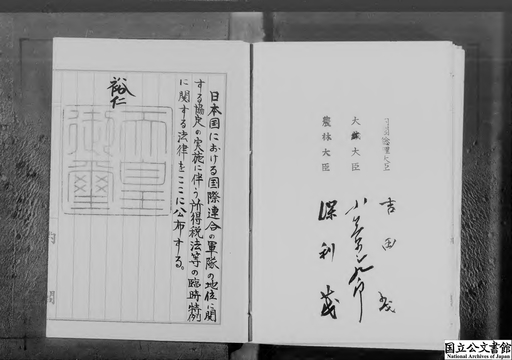 日本国における国際連合の軍隊の地位に関
する協定の実施に伴う所得税法等の臨時特例
に関する法律をここに公布する。
裕仁
天皇
御璽
内閣総理大臣
吉田茂
大蔵大臣
農林大臣
保利茂
国立公文書館
National Archives of Japan